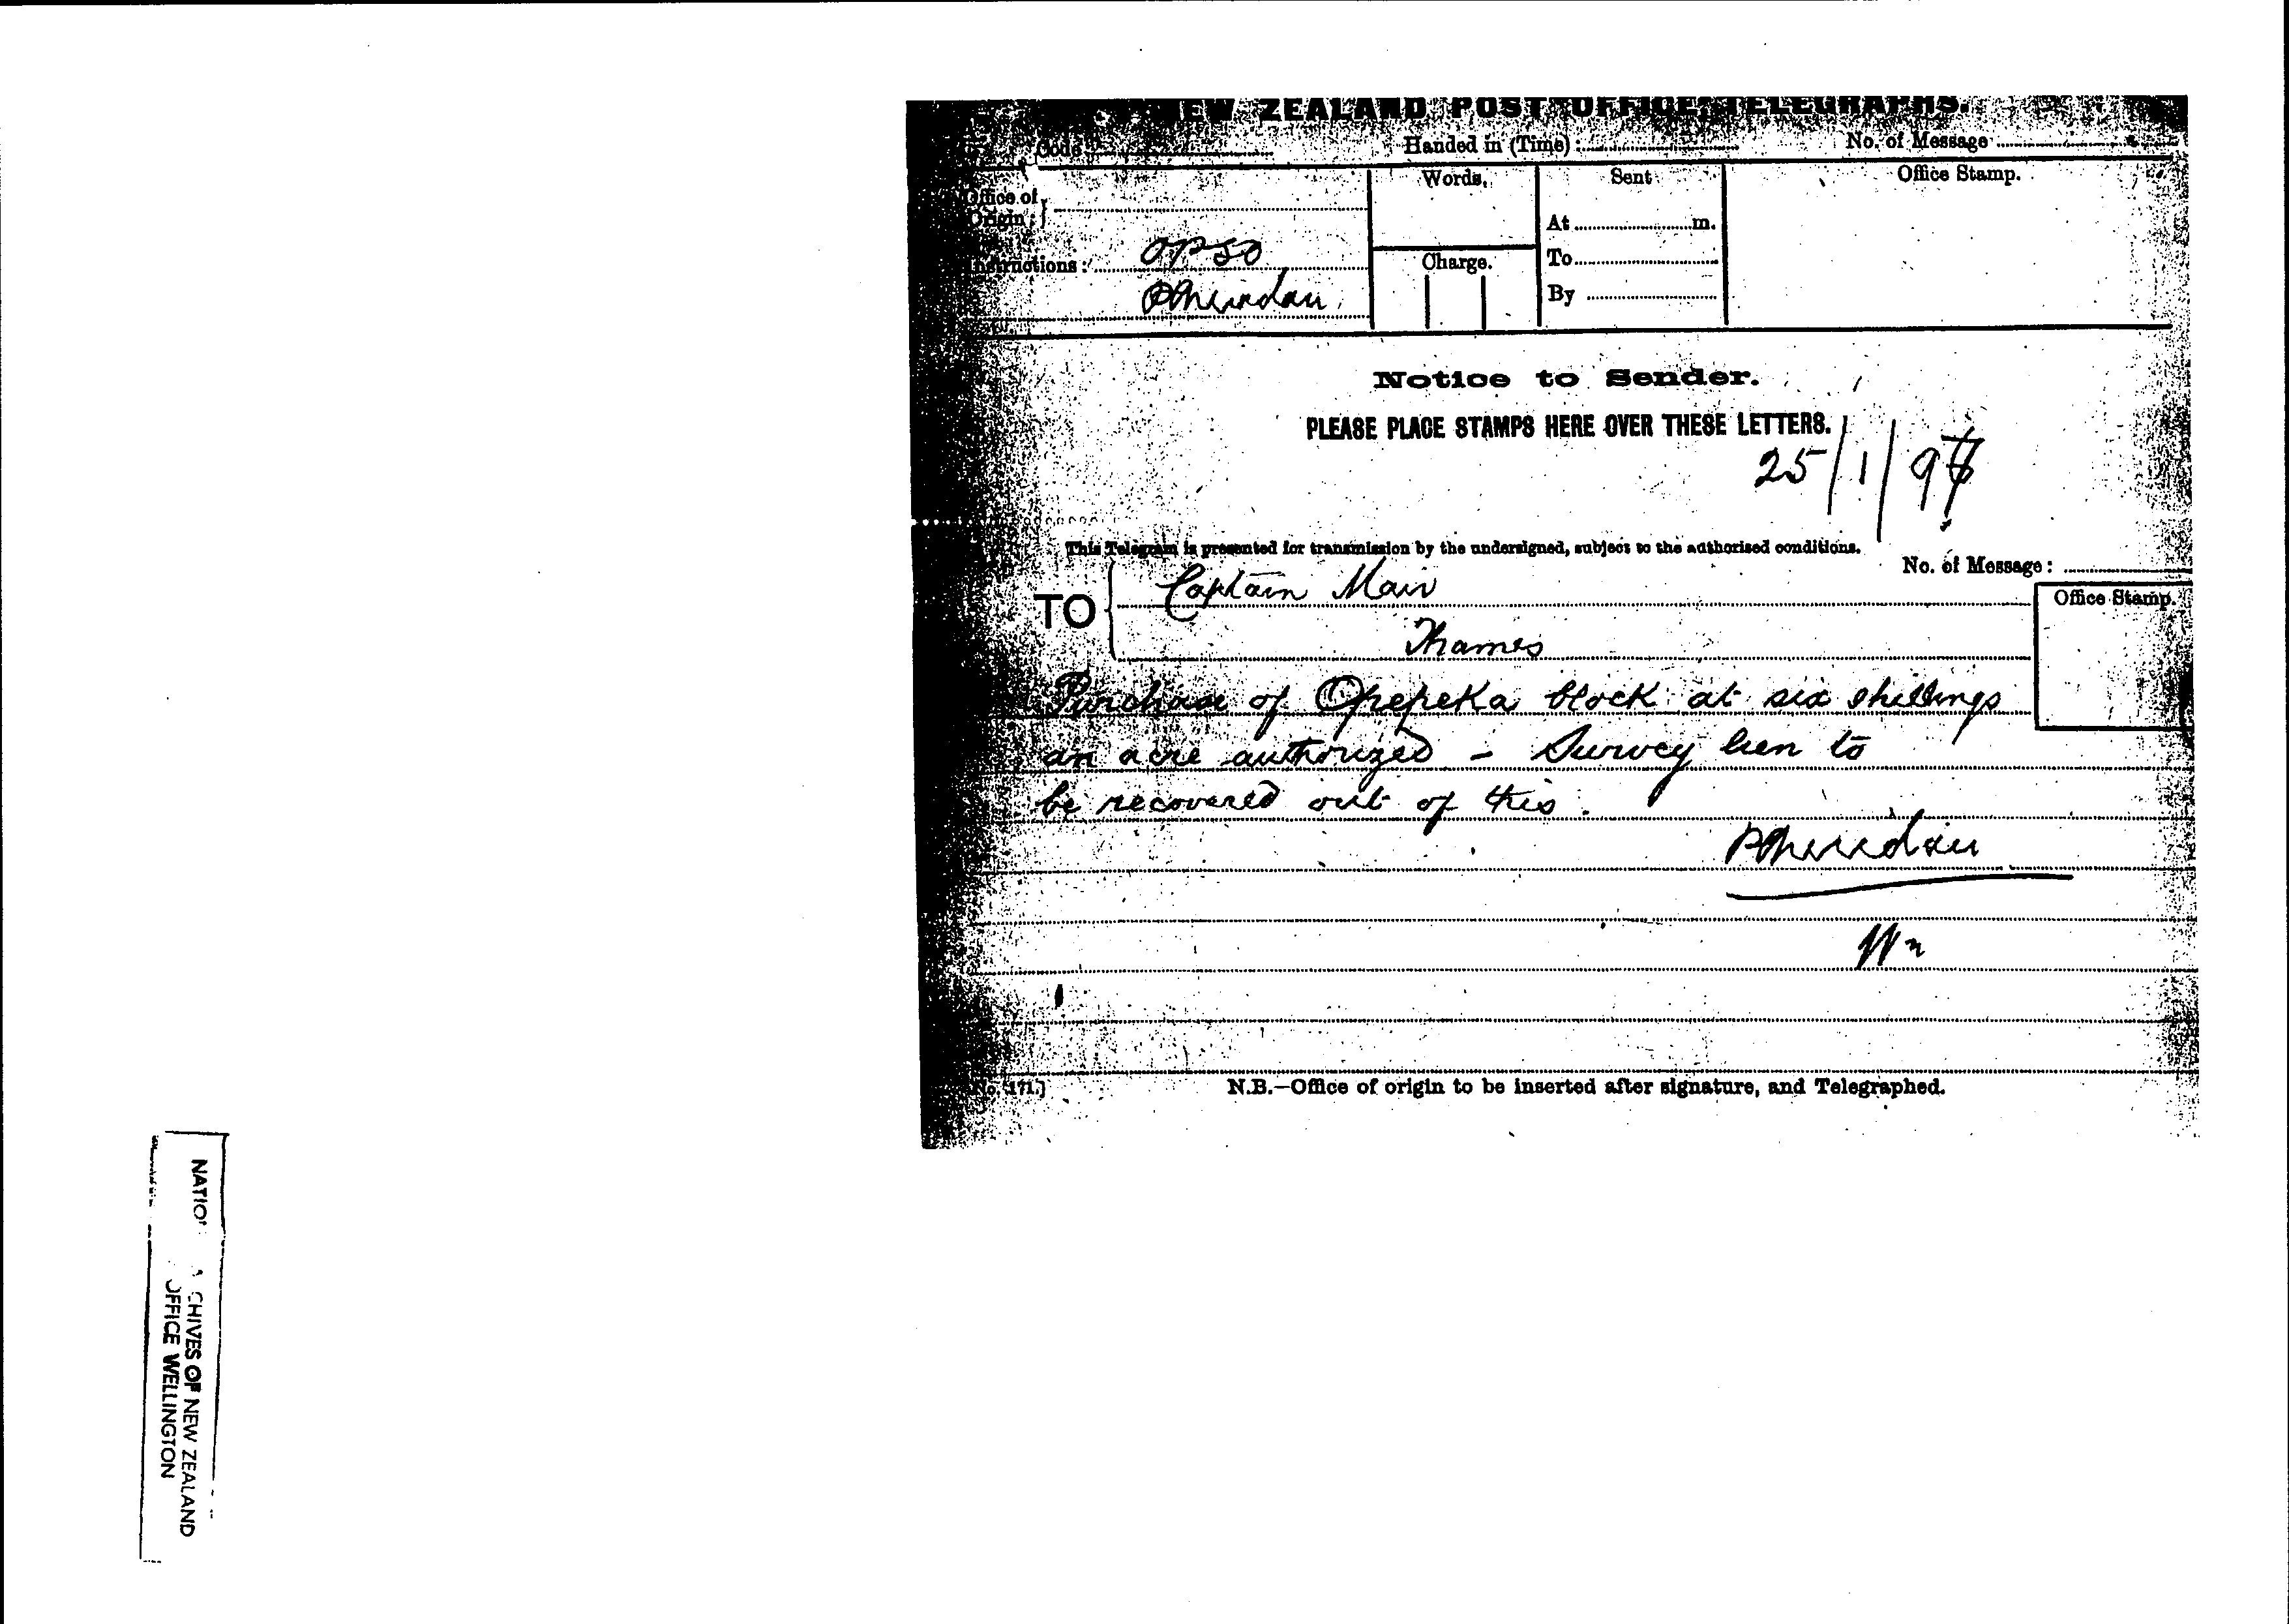 NEW ZEALAND POST OFFICE TELEGRAPHS.
Code Handed in (Time): No. of Message
Office of Origin: Words. Sent Office Stamp.
At m.
Instructions: OPSO Charge. To
PSheridan By
Notice to Sender.
PLEASE PLACE STAMPS HERE OVER THESE LETTERS.
25/1/97
This Telegram is presented for transmission by the undersigned, subject to the authorised conditions.
No. of Message:
TO Captain Mair Office Stamp.
Thames
Purchase of Opepeka block at six shillings
an acre authorized - Survey lien to
be recovered out of this.
PSheridan
Wn
No. 171.]
N.B.—Office of origin to be inserted after signature, and Telegraphed.
CHIVES OF NEW ZEALAND
OFFICE WELLINGTON